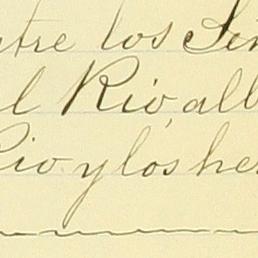 tre los Se
l Rio, alb
Rio y los he